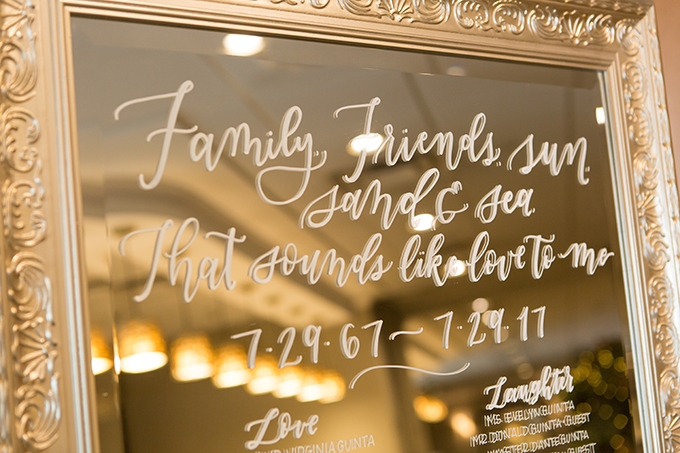 Family, Friends, sun,
sand & sea.
That sounds like love to me
7.29.67 ~ 7.29.17
Love
VIRGINIA GUINTA
Laughter
MRS. EVELYN GUINTA
MR. DONALD GUINTA - GUEST
DANTE GUINTA